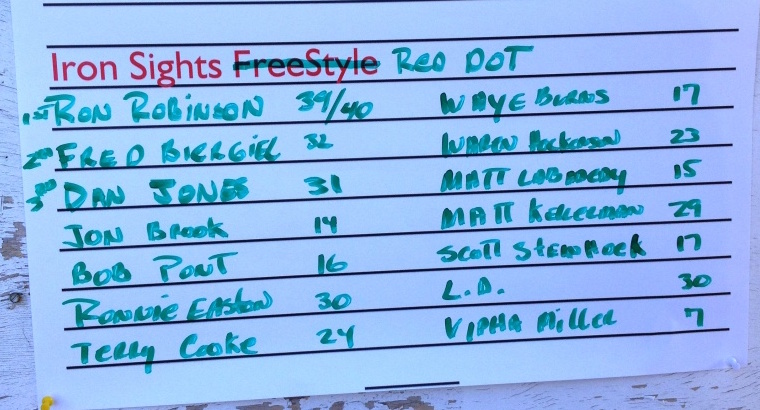 Iron Sights FreeStyle Red DOT
1st RON ROBINSON 39/40 WAYE BURNS 17
2nd FRED BIERGIEL 32 WAREN 23
3rd DAN JONES 31 MATT 15
JON Brook 14 MATT Kellerman 29
BOB PONT 16 SCOTT 17
Ronnie Easton 30 L.D. 30
Terry Cooke 24 VIPHA Miller 7